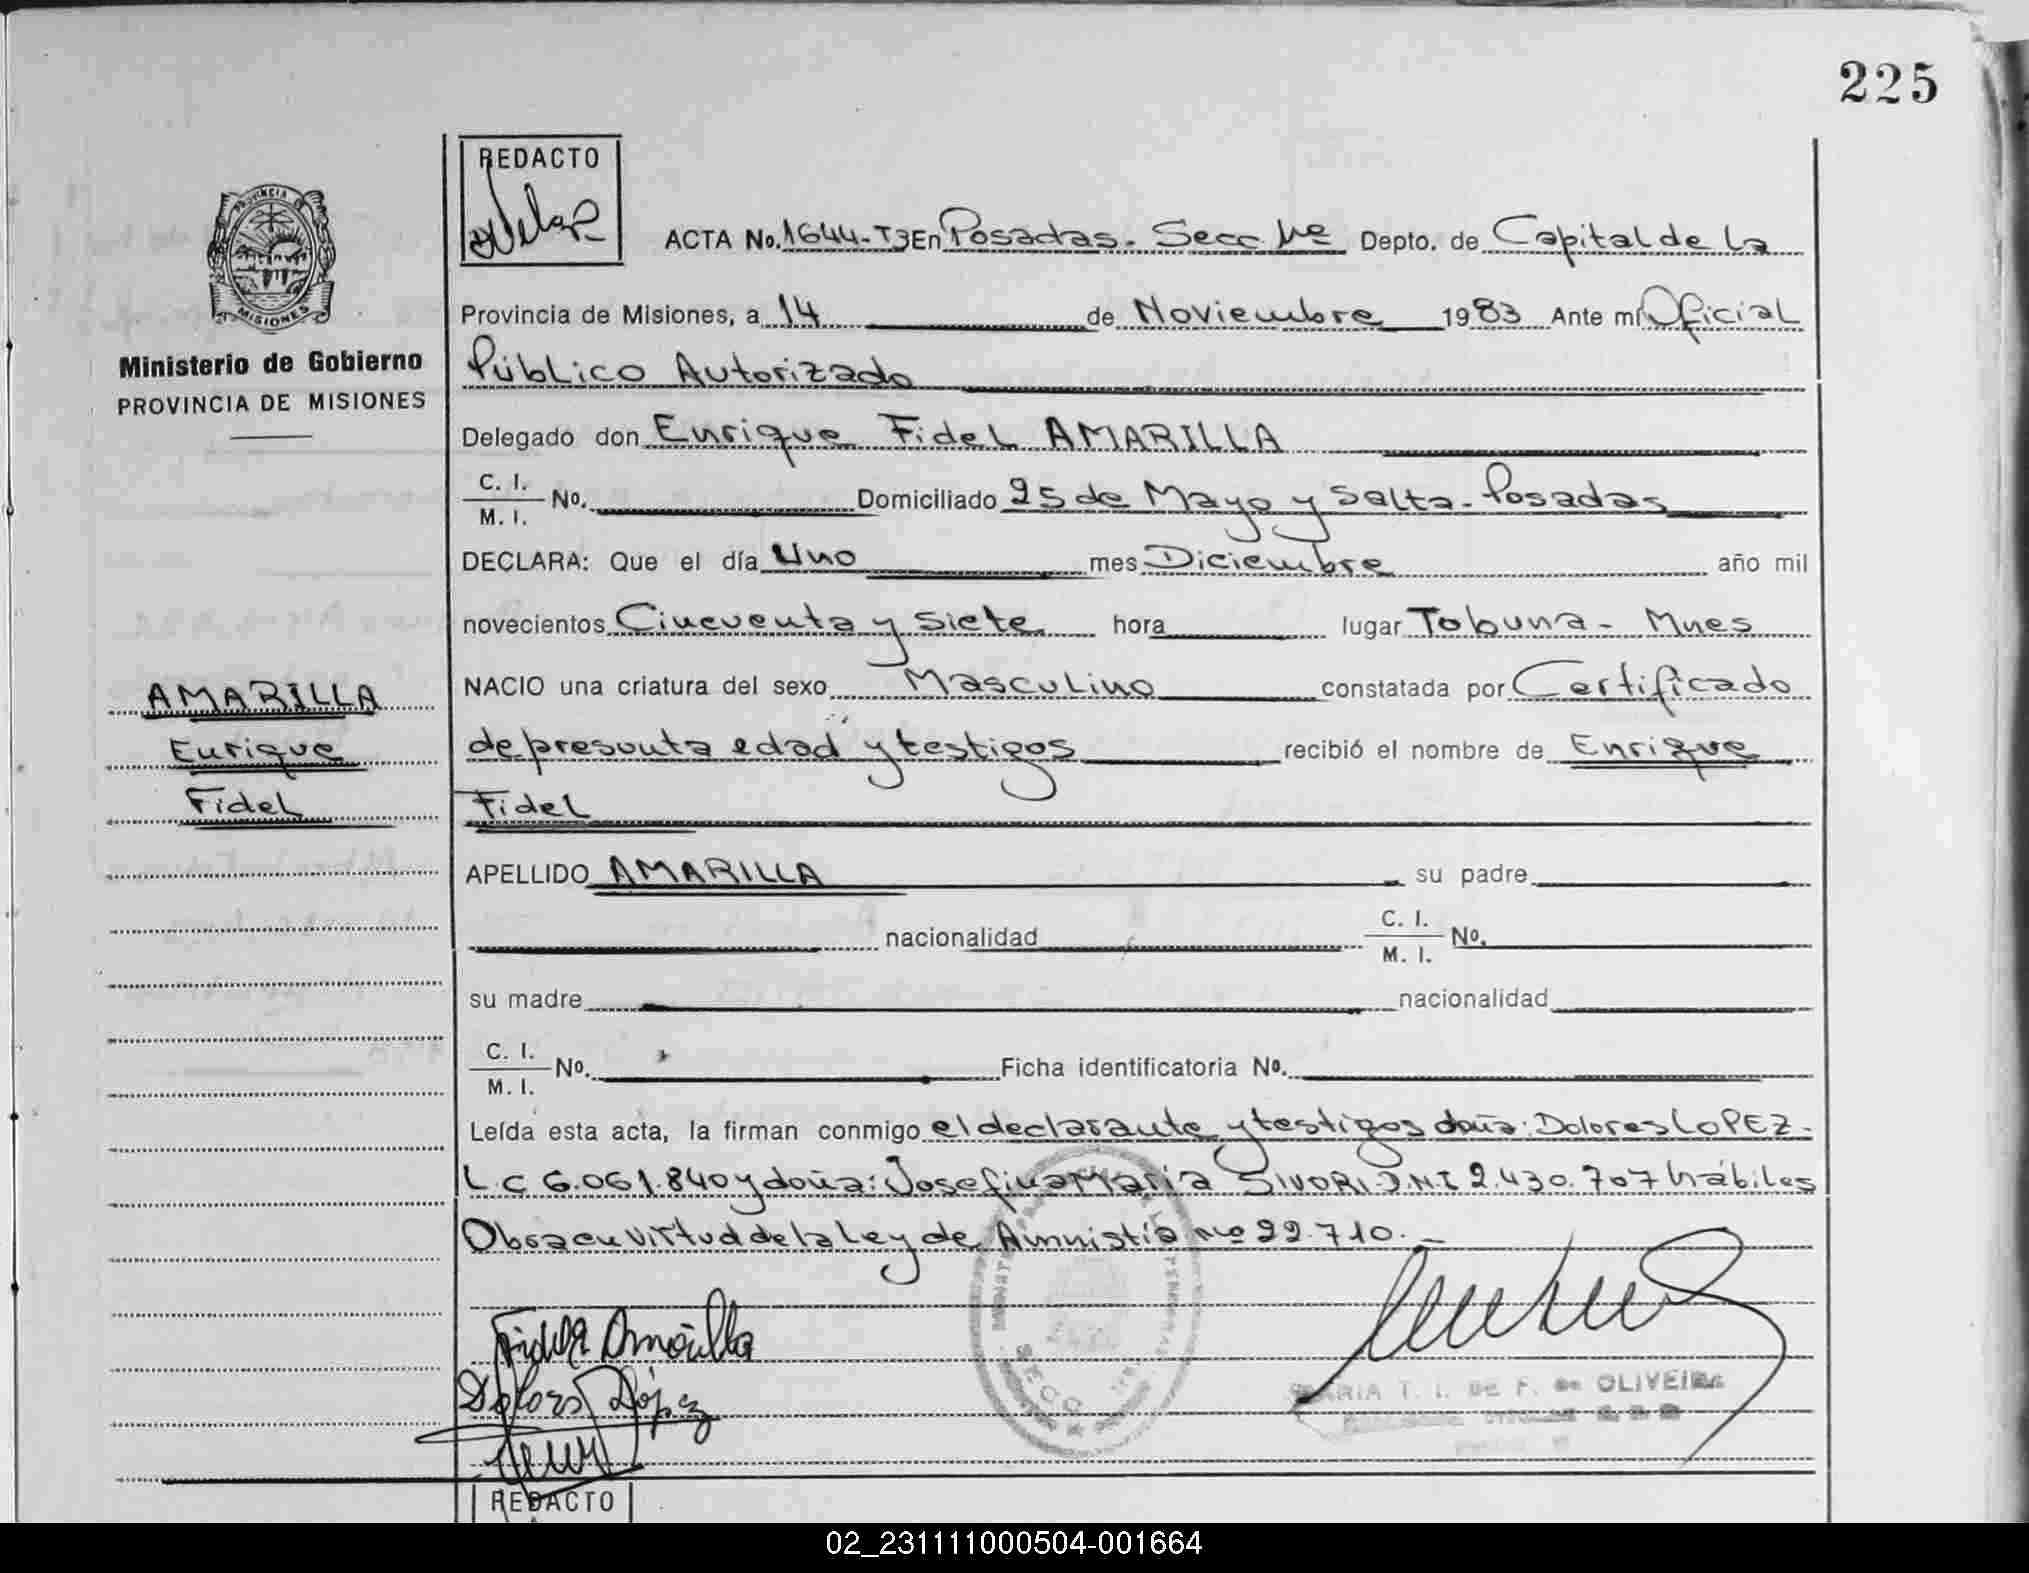 225
REDACTO
PROVINCIA DE
MISIONES
Ministerio de Gobierno
PROVINCIA DE MISIONES
ACTA No. 1644-T3 En Posadas. Secc 1ra Depto. de Capital de la
Provincia de Misiones, a 14 de Noviembre 1983 Ante mí Oficial
Público Autorizado
Delegado don Enrique Fidel AMARILLA
C. I.
M. I. No. Domiciliado 25 de Mayo y Salta - Posadas
DECLARA: Que el día Uno mes Diciembre año mil
novecientos Cincuenta y siete hora lugar Tobuna - Mnes
NACIO una criatura del sexo Masculino constatada por Certificado
de presunta edad y testigos recibió el nombre de Enrique
Fidel
AMARILLA
Enrique
Fidel
APELLIDO AMARILLA su padre
nacionalidad C. I.
M. I. No.
su madre nacionalidad
C. I.
M. I. No. Ficha identificatoria No.
Leída esta acta, la firman conmigo el declarante y testigos doña: Dolores LOPEZ -
L.C 6.061.840 y doña: Josefina Maria SIVORI D.N.I 2.430.707 hábiles
Obra en virtud de la Ley de Amnistía no 22.710. -
Fidel Amarilla
Dolores López
SECC
MARIA T. I. DE F. de OLIVEIRA
REDACTO
02_231111000504-001664